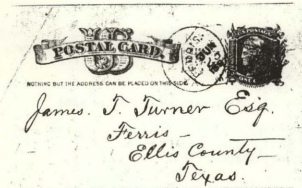 POSTAL CARD.
NOTHING BUT THE ADDRESS CAN BE PLACED ON THIS SIDE.
James. T. Turner Esq.
Ferris -
Ellis County
Texas.